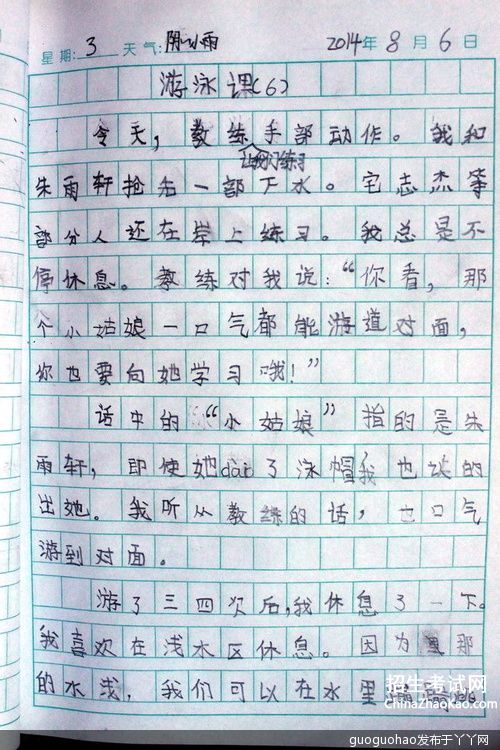 星期:3 天气:阴心雨 2014年8月6日
游泳课(6)
今天,教练手部动作。我和
让我们练习
朱雨轩抢先一部下水。宅志杰等
部分人还在岸上练习。我总是不
停休息。教练对我说:“你看,那
个小姑娘一口气都能游道对面,
你也要向她学习哦!”
话中的“小姑娘”指的是朱
雨轩,即使她dai了泳帽我也认的
出她。我听从教练的话,一口气
游到对面。
游了三四次后,我休息了一下。
我喜欢在浅水区休息。因为那
的水浅,我们可以在水里
招生考试网
ChinaZhaoKao.com
guoguohao发布于丫丫网